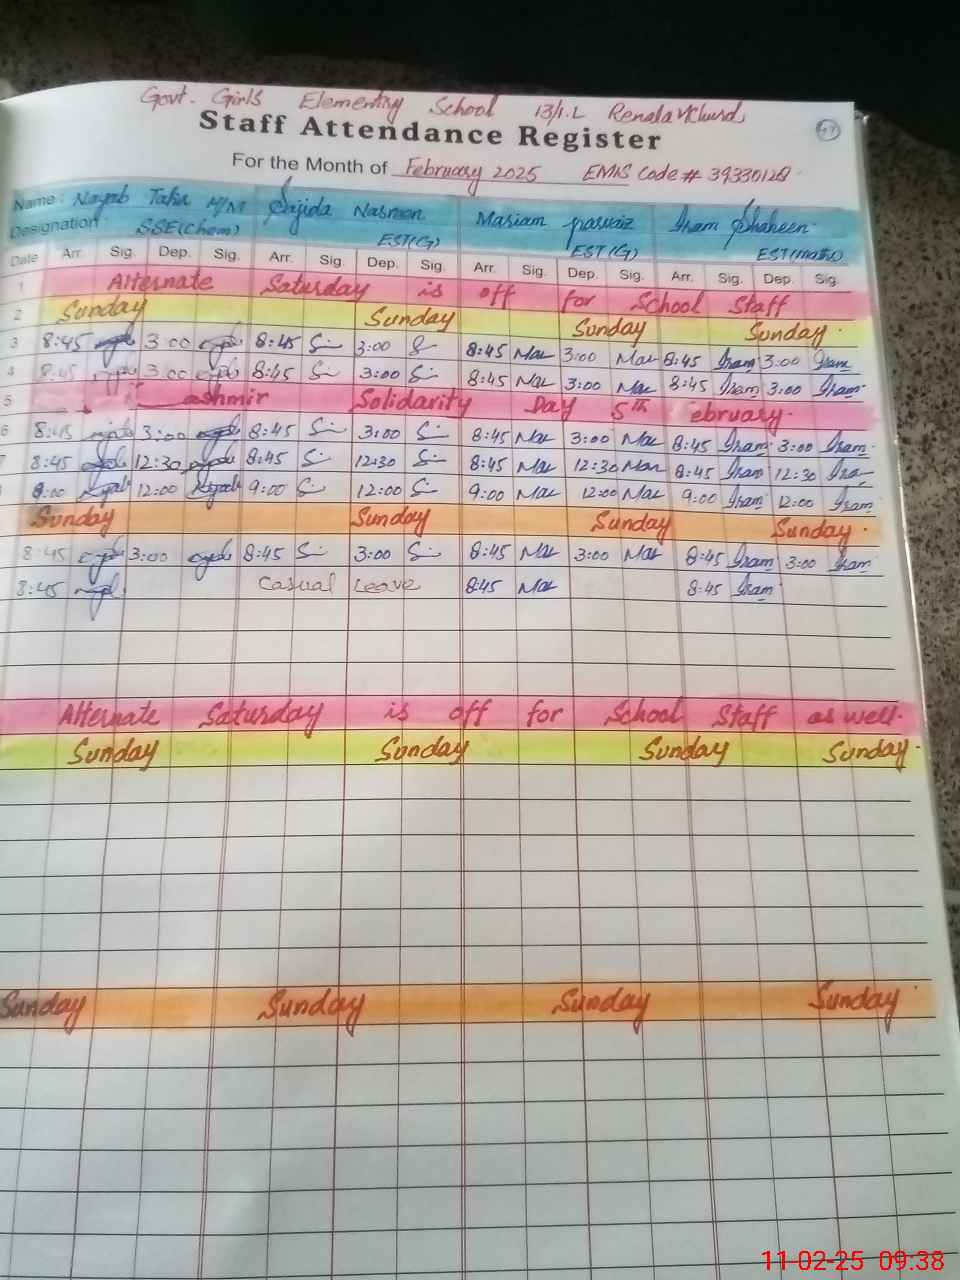 Govt. Girls Elementary School 13/1.L Renala Khurd
Staff Attendance Register
47
For the Month of February 2025 EMIS Code # 39330128
Name: Nayab Tahir H/M Sajida Nasreen Mariam parvaiz Iram Shaheen
Designation SSE(Chem) EST(G) EST(G) EST(maths)
Date Arr. Sig. Dep. Sig. Arr. Sig. Dep. Sig. Arr. Sig. Dep. Sig. Arr. Sig. Dep. Sig.
1 Alternate Saturday is off for School Staff
2 Sunday Sunday Sunday Sunday
3 8:45 3:00 8:45 3:00 8:45 Mar 3:00 Mar 8:45 Iram 3:00 Iram
4 8:45 3:00 8:45 3:00 8:45 Mar 3:00 Mar 8:45 Iram 3:00 Iram
5 ashmir Solidarity Day 5th ebruary.
6 8:45 3:00 8:45 3:00 8:45 Mar 3:00 Mar 8:45 Iram 3:00 Iram
7 8:45 12:30 8:45 12:30 8:45 Mar 12:30 Mar 8:45 Iram 12:30 Iram
9:00 Nayab 12:00 Nayab 9:00 12:00 9:00 Mar 12:00 Mar 9:00 Iram 12:00 Iram
Sunday Sunday Sunday Sunday
8:45 3:00 8:45 3:00 8:45 Mar 3:00 Mar 8:45 Iram 3:00 Iram
8:45 Casual Leave 8:45 Mar 8:45 Iram
Alternate Saturday is off for School Staff as well.
Sunday Sunday Sunday Sunday
Sunday Sunday Sunday Sunday
11-02-25 09:38